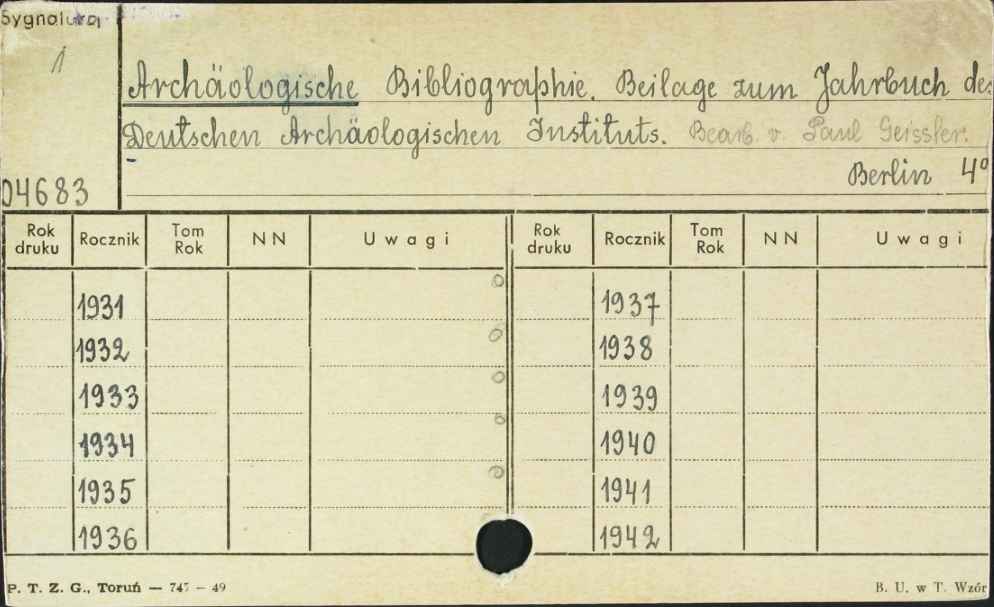 Sygnatura
1
Archäologische Bibliographie. Beilage zum Jahrbuch des
Deutschen Archäologischen Instituts. Bearb. v. Paul Geissler.
Berlin 4°
04683
Rok druku Rocznik Tom Rok NN Uwagi Rok druku Rocznik Tom Rok NN Uwagi
1931 1937
1932 1938
1933 1939
1934 1940
1935 1941
1936 1942
P. T. Z. G., Toruń — 745 — 49 B. U. w T. Wzór